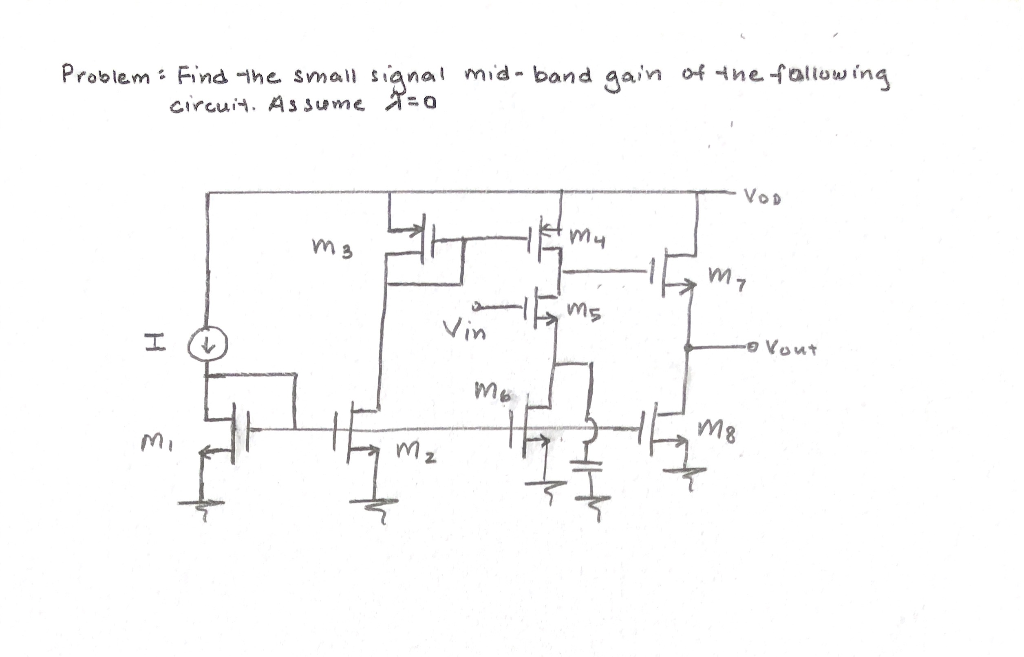 Problem : Find the small signal mid-band gain of the following
circuit. Assume λ=0
VDD
M3
M4
M7
Vin
M5
I
Vout
M6
M1
M2
M8